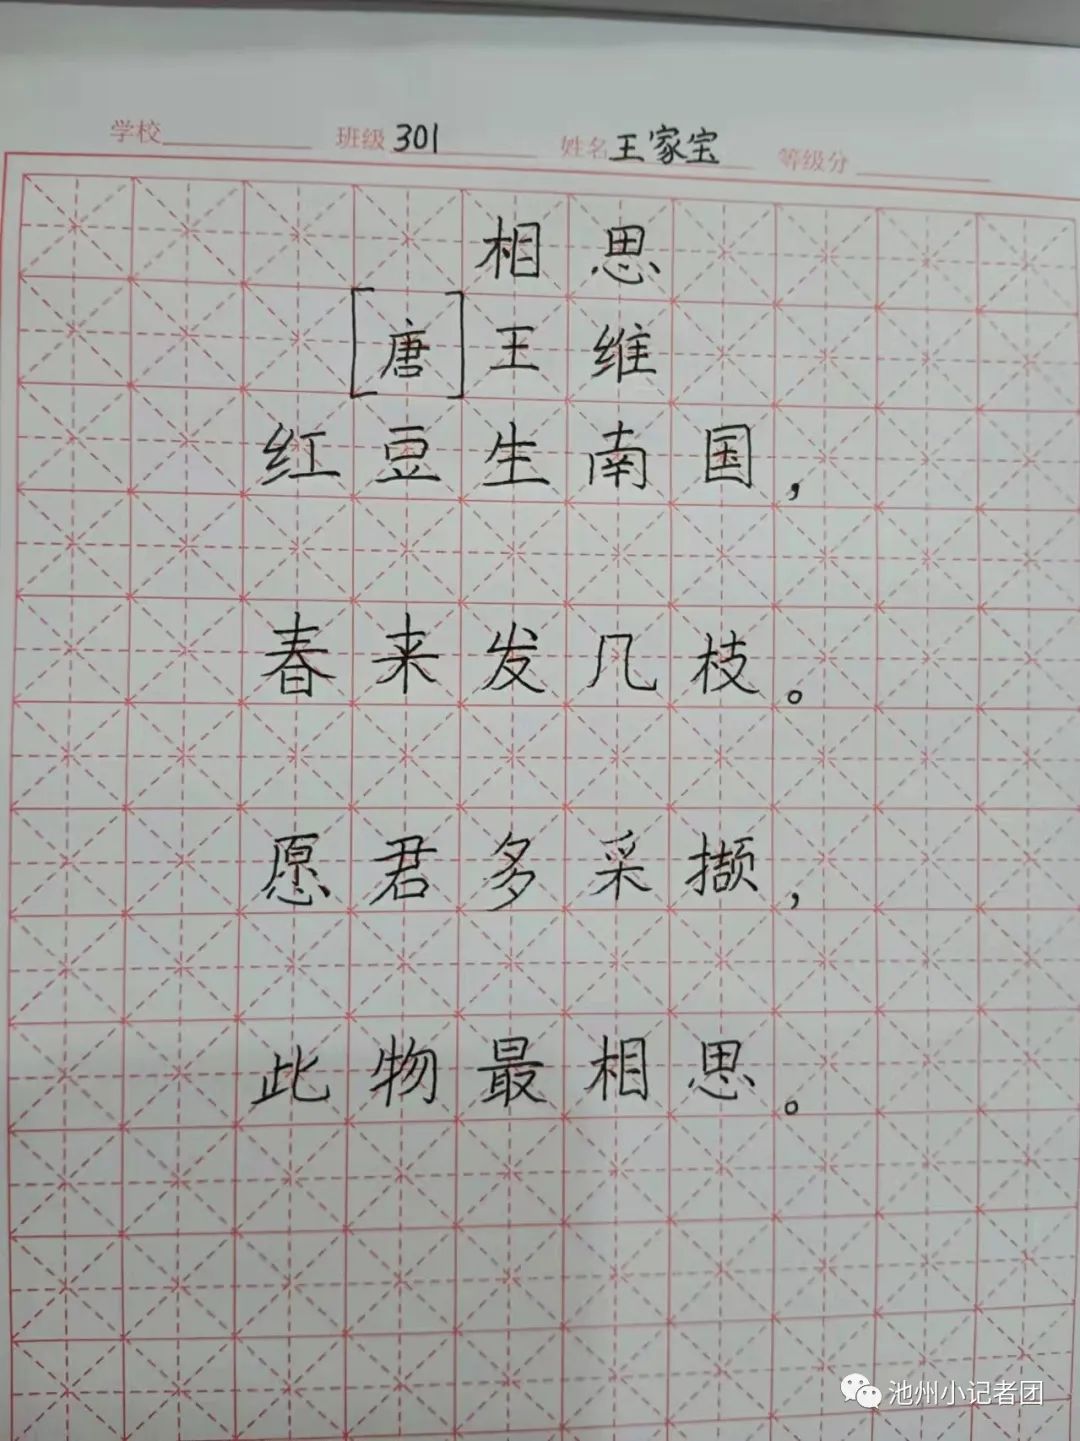 学校 班级 301 姓名 王家宝 等级分
相思
[唐]王维
红豆生南国，
春来发几枝。
愿君多采撷，
此物最相思。
池州小记者团